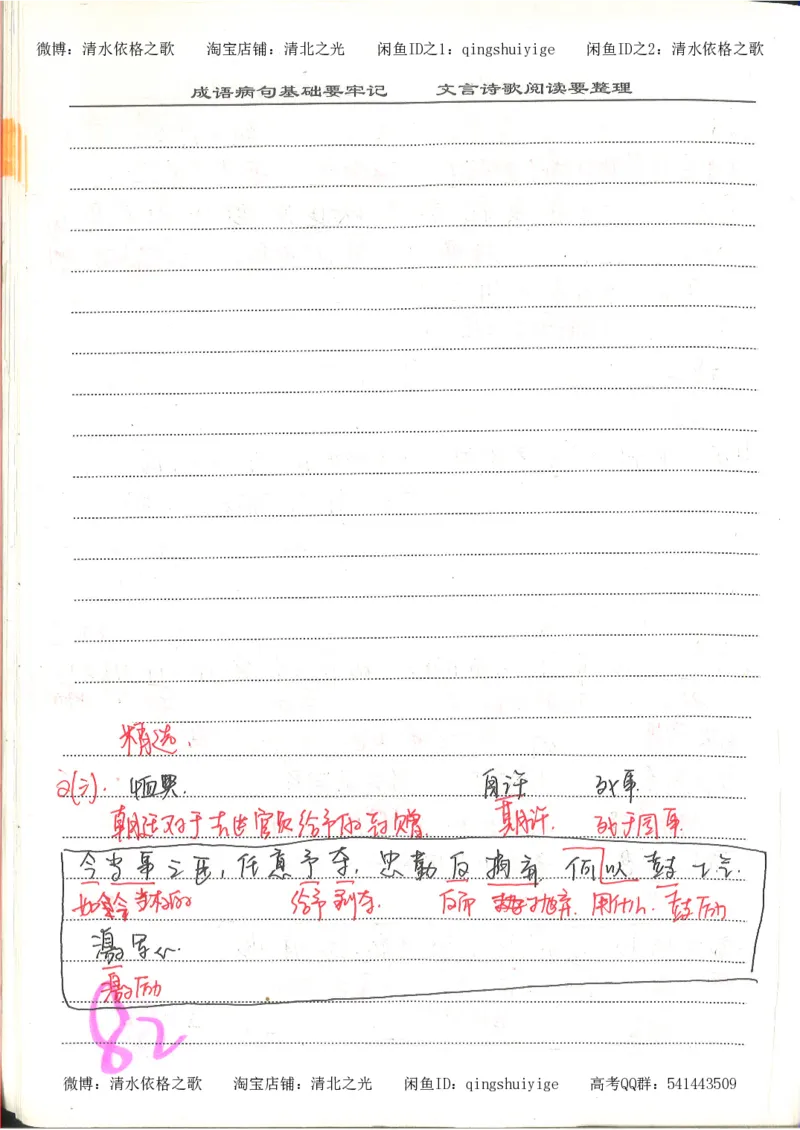 微博：清水依格之歌 淘宝店铺：清北之光 闲鱼ID之1：qingshuiyige 闲鱼ID之2：清水依格之歌
成语病句基础要牢记 文言诗歌阅读要整理
精选.
2(六). 恤典 自许 死事
朝廷对于去世官员给予的封赠. 期许. 死于国事
今当事之臣，任意予夺，忠勤反摘弃，何以鼓士气.
如今 当权的 给予 剥夺. 反而 抛弃. 用什么. 鼓励
激军心.
激励
82
微博：清水依格之歌 淘宝店铺：清北之光 闲鱼ID：qingshuiyige 高考QQ群：541443509